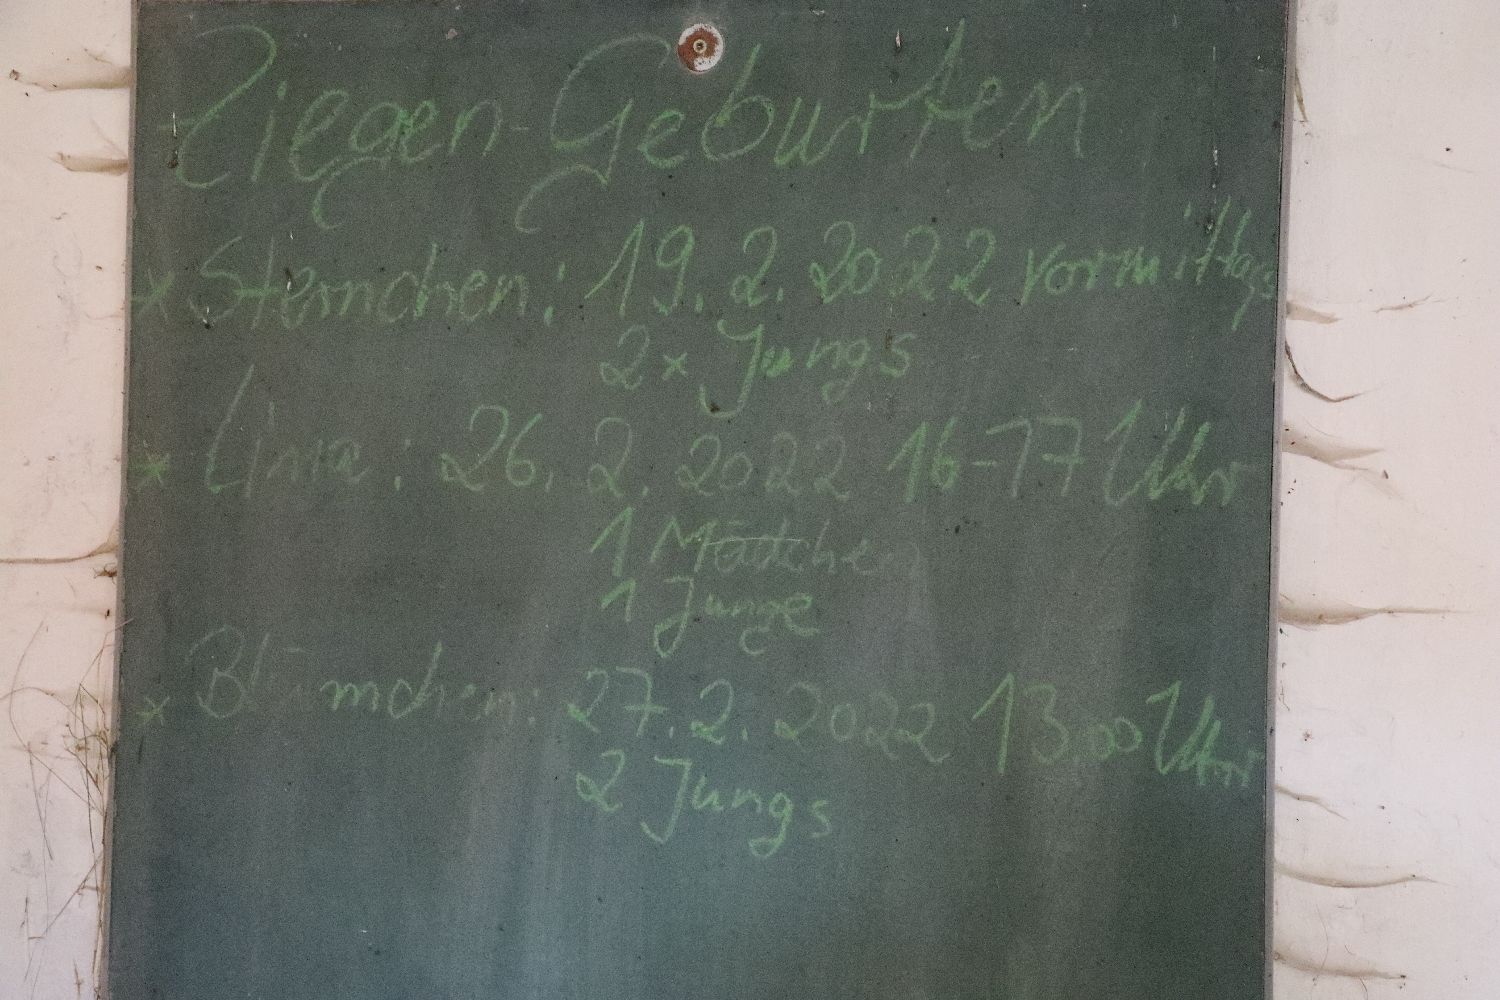 Ziegen-Geburten
* Sternchen: 19.2.2022 vormittags
2x Jungs
* Lina: 26.2.2022 16-17 Uhr
1 Mädchen
1 Junge
* Blümchen: 27.2.2022 13.00 Uhr
2 Jungs